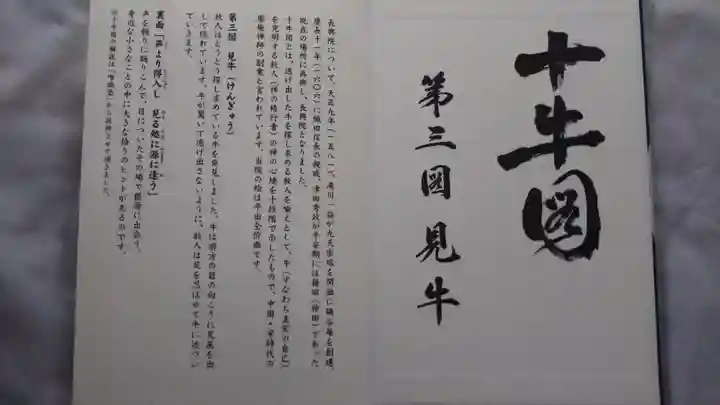 十牛図
第三図 見牛
長興院について、天正九年(一五八一)、滝川一益が九天宗瑞を開祖に暘谷庵を創建。
慶長十一年(一六〇六)に織田信長の親戚、津田秀政が平安期には鎌田(神田)であった
現在の場所に再興し、長興院となりました。
十牛図とは、逃げ出した牛を探し求める牧人を喩えとして、牛(すなわち真実の自己)
を究明する牧人(禅の修行者)の禅の心境を十段階で示したもので、中国・宋時代の
廓庵禅師の創案と言われています。当院の絵は平出全价画です。
第三図 見牛(けんぎゅう)
牧人はとうとう探し求めている牛を発見しました。牛は前方の岩の向こうに尻尾を出
して隠れています。牛が驚いて逃げ出さないように、牧人は足を忍ばせて牛に近づい
ていきます。
裏面「声より得入し 見る処に源に逢う」
声を頼りに踊りこんで、目についたその場で根源に出会う。
身近な小さなことの中に大きな悟りのヒントがあるのです。